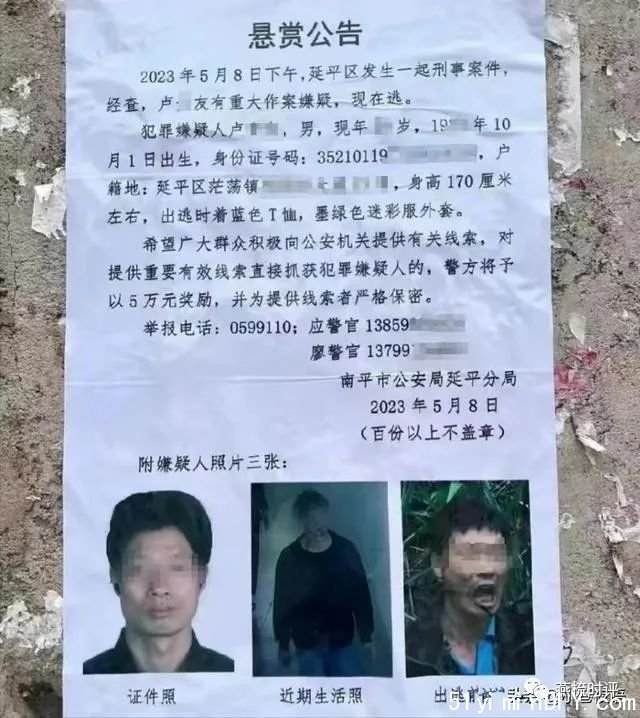 悬赏公告
2023年5月8日下午，延平区发生一起刑事案件，
经查，卢 友有重大作案嫌疑，现在逃。
犯罪嫌疑人卢 ，男，现年 岁，19 年10
月1日出生，身份证号码：35210119 ，户
籍地：延平区茫荡镇 ，身高170厘米
左右，出逃时着蓝色T恤，墨绿色迷彩服外套。
希望广大群众积极向公安机关提供有关线索，对
提供重要有效线索直接抓获犯罪嫌疑人的，警方将予
以5万元奖励，并为提供线索者严格保密。
举报电话：0599110；应警官 13859
廖警官 13799
南平市公安局延平分局
2023年5月8日
（百份以上不盖章）
附嫌疑人照片三张：
证件照
近期生活照
出逃
燕梳时评